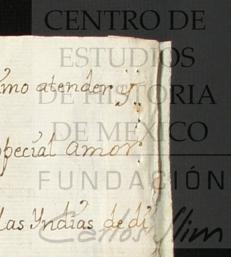 CENTRO DE
ESTUDIOS
DE HISTORIA
DE MÉXICO
FUNDACIÓN
Carlos Slim
atender y
special amor
las Yndias de